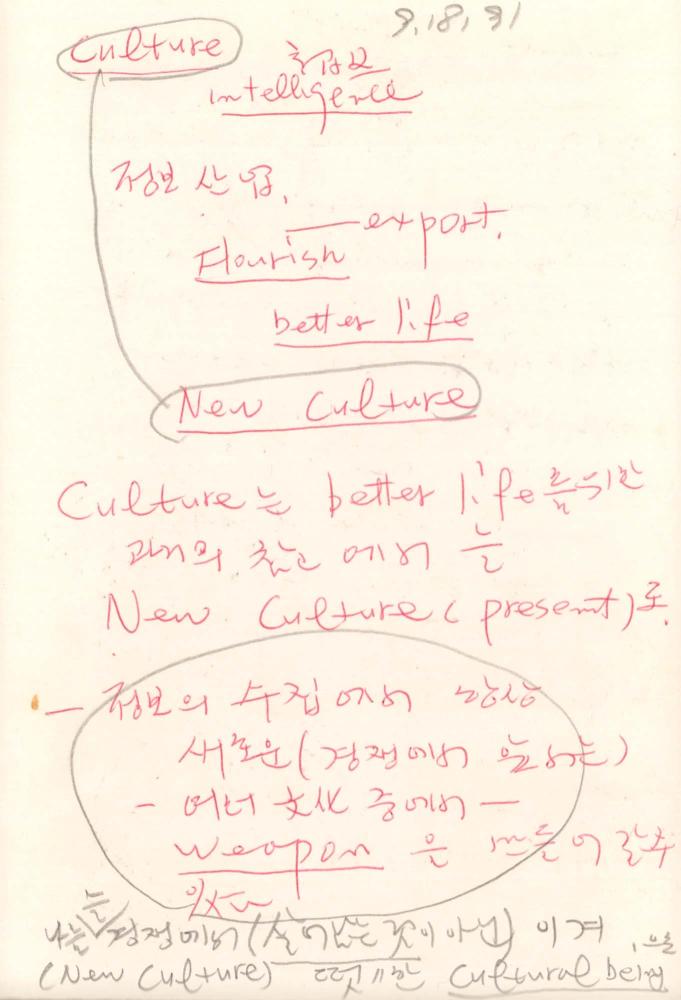 9, 18, 91
Culture
intelligence
정보 산업,
export,
Flourish
better life
New Culture
Culture는 better life를 위한
과거의 참고에서 늘
New Culture (present)로
— 정보의 수집에서 항상
새로운 (경쟁에서
- 여러 文化 중에서 —
weapon 을 만들어 갈 수
있다
경쟁에서 (살아남는 것이 아님) 이겨
(New Culture) 떳떳한 Cultural being